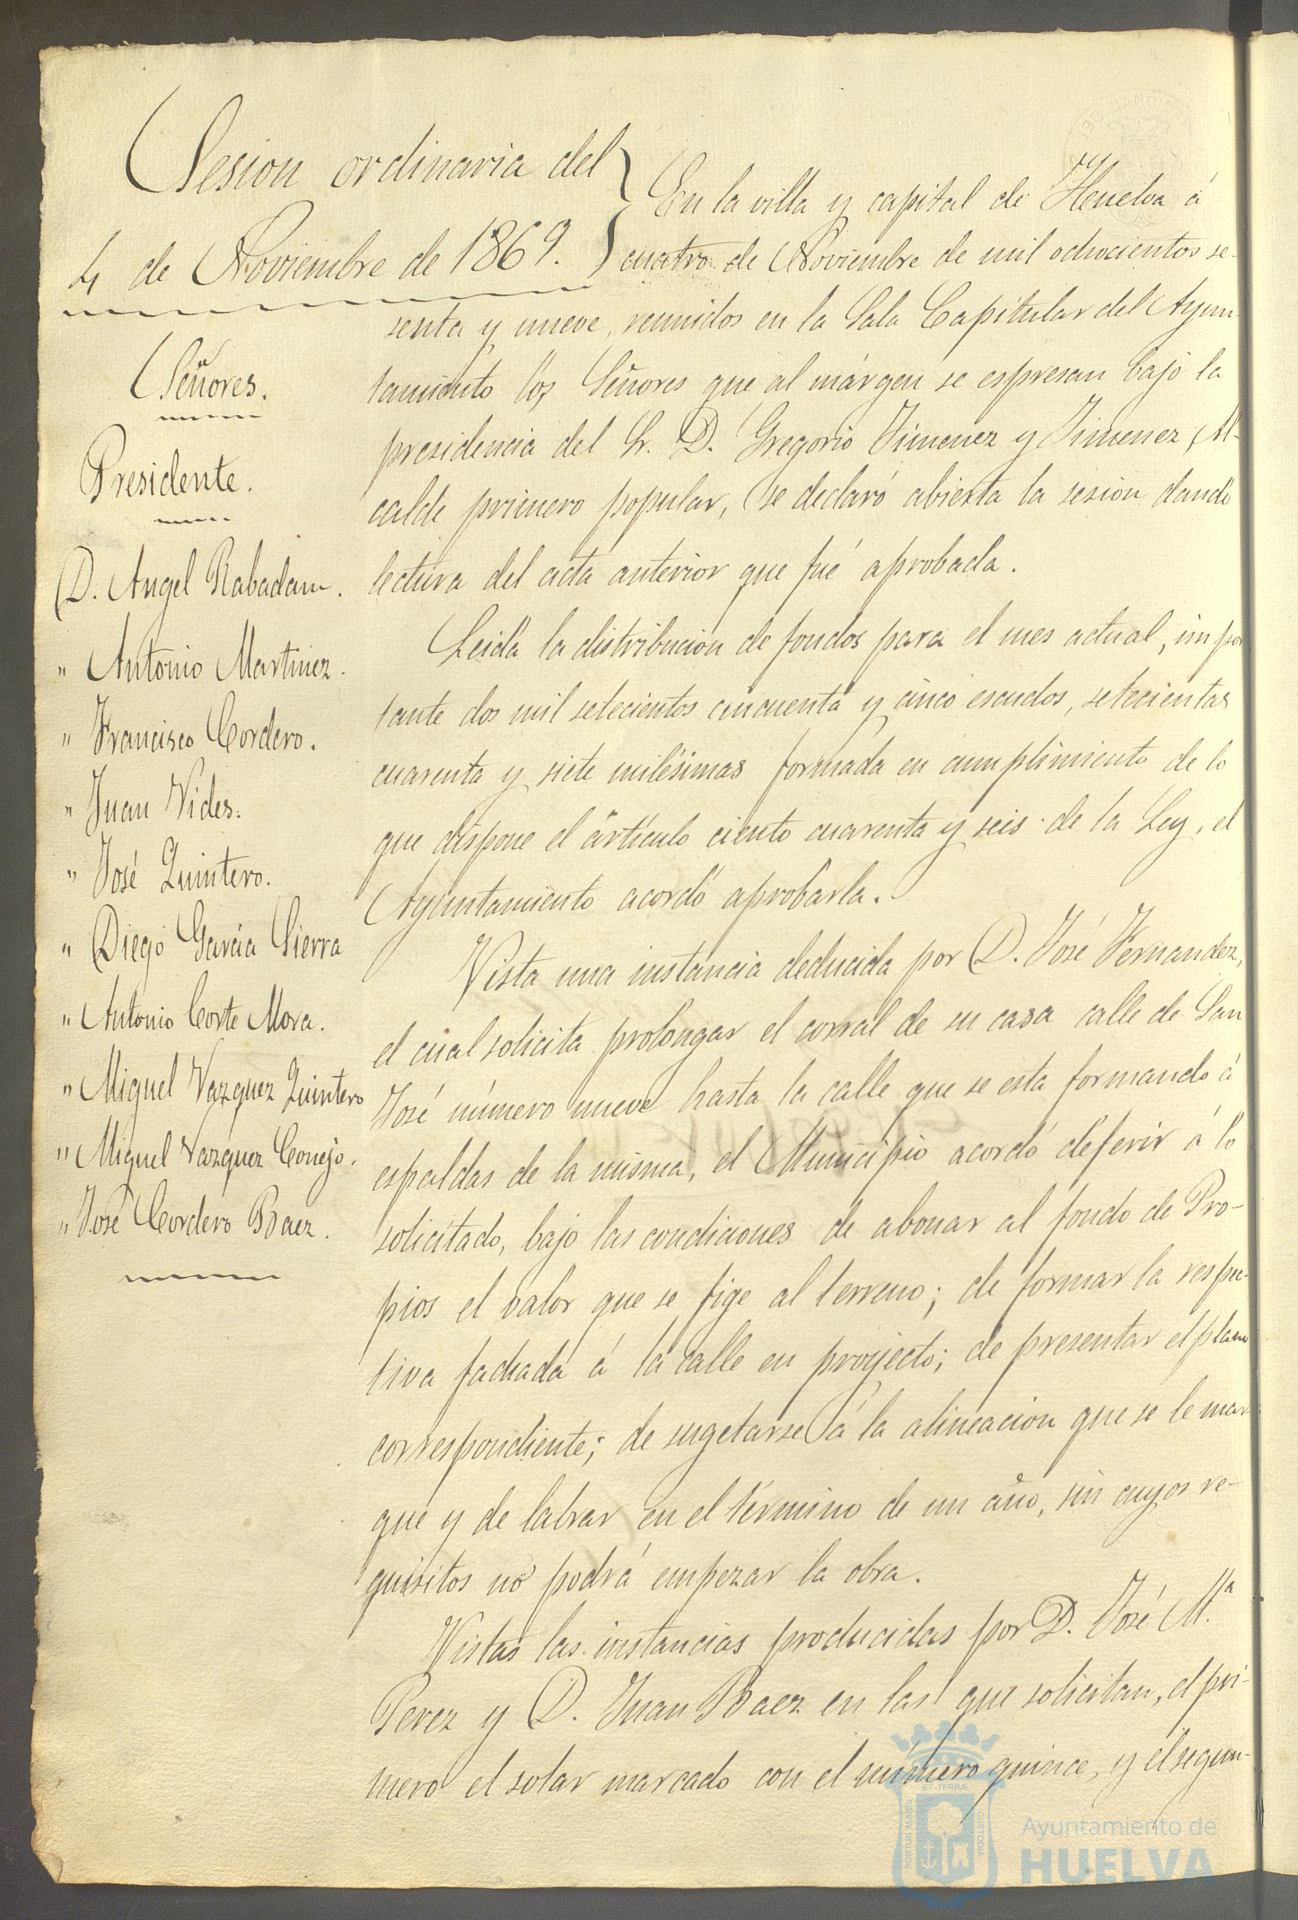 Sesion ordinaria del
4 de Noviembre de 1869.
Señores.
Presidente.
D. Angel Rabadan.
" Antonio Martinez.
" Francisco Cordero.
" Juan Vides.
" José Quintero.
" Diego Garcia Sierra
" Antonio Corte Mora.
" Miguel Vazquez Quintero
" Miguel Vazquez Conejo.
" José Cordero Baez.
En la villa y capital de Huelva á
cuatro de Noviembre de mil ochocientos se-
senta y nueve, reunidos en la Sala Capitular del Ayun-
tamiento los Señores que al márgen se espresan bajo la
presidencia del Sr. D. Gregorio Jimenez y Jimenez, Al-
calde primero popular, se declaró abierta la sesion dando
lectura del acta anterior que fué aprobada.
Leida la distribucion de fondos para el mes actual, impor
tante dos mil setecientos cincuenta y cinco escudos, setecientas
cuarenta y siete milésimas formada en cumplimiento de lo
que dispone el artículo ciento cuarenta y seis de la Ley, el
Ayuntamiento acordó aprobarla.
Vista una instancia deducida por D. José Fernandez,
el cual solicita prolongar el corral de su casa calle de San
José número nueve hasta la calle que se está formando á
espaldas de la misma, el Municipio acordó deferir á lo
solicitado, bajo las condiciones de abonar al fondo de Pro-
pios el valor que se fige al terreno; de formar la respec-
tiva fachada á la calle en proyecto; de presentar el plano
correspondiente; de sugetarse á la alineacion que se le mar
que y de labrar en el término de un año, sin cuyos re-
quisitos no podrá empezar la obra.
Vistas las instancias producidas por D. José M.ª
Perez y D. Juan Baez en las que solicitan, el pri-
mero el solar marcado con el número quince, y el segun-
Ayuntamiento de
HUELVA